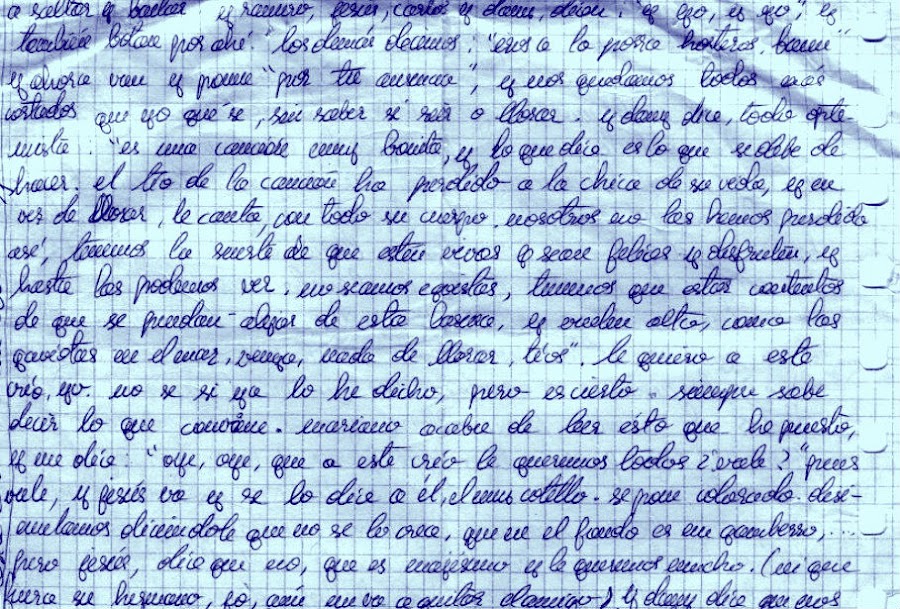 a saltar y bailar y ramiro, jesús, carlos y dany, dicen: "y yo, y yo", y
también botan por ahí. los demás decimos: "eres a la porra horteras, bum"
y ahora van y ponen "por tu ausencia", y nos quedamos todos más
cortados que yo qué sé, sin saber si reír o llorar. y dany dice, todo opti-
mista: "es una canción muy bonita, y lo que dice es lo que se debe de
hacer. el tío de la canción ha perdido a la chica de su vida, y en
vez de llorar, le canta, con todo su cuerpo. nosotros no las hemos perdido
así, tenemos la suerte de que estén vivas y sean felices y disfruten, y
hasta las podemos ver. no seamos egoístas, tenemos que estar contentos
de que se puedan alejar de esta basura, y vuelen alto, como las
gaviotas en el mar, venga, nada de llorar, tíos". le quiero a este
crío, yo. no se si ya lo he dicho, pero es cierto. siempre sabe
decir lo que conviene. mariano acaba de leer ésto que he puesto,
y me dice: "oye, oye, que a este crío le queremos todos ¿vale?" pues
vale, y jesús va y se lo dice a él, el muy cotilla. se pone colorado. disi-
mulamos diciéndole que no se lo crea, que en el fondo es un gamberro,...
pero jesús, dice que no, que es majísimo y le queremos mucho. (ni que
fuera su hermano, jo, aún me va a quitar el amigo) y dany dice que nos